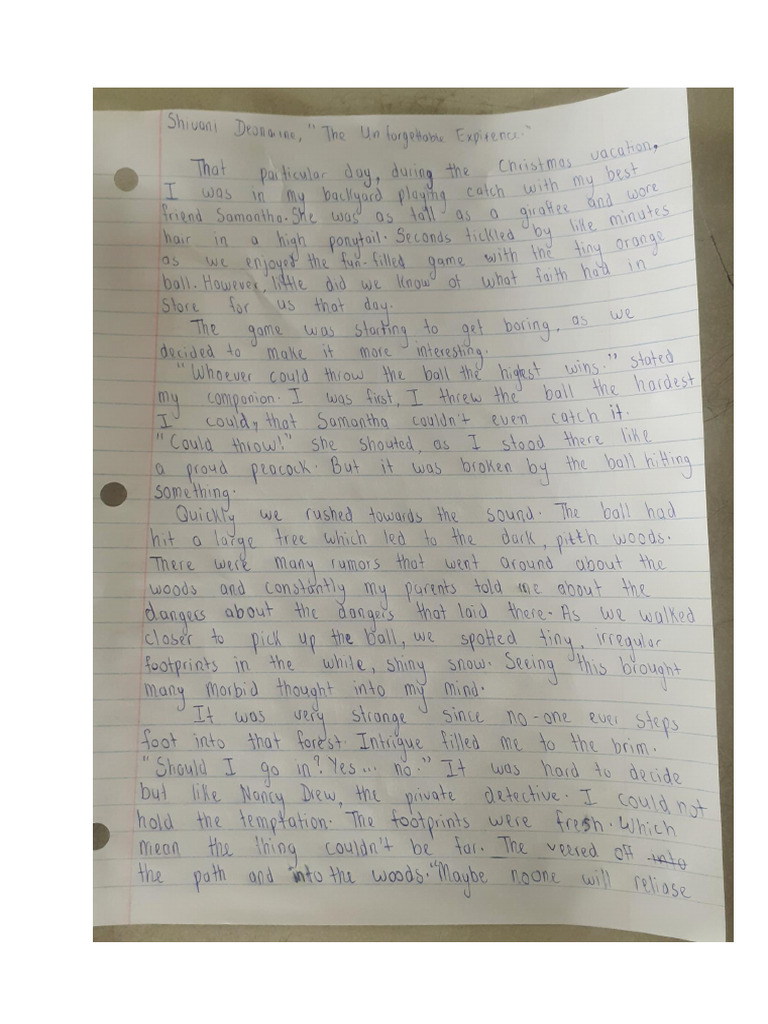 Shivani Deonarine, "The Unforgettable Expirence."
That particular day, during the Christmas vacation,
I was in my backyard playing catch with my best
friend Samantha. She was as tall as a giraffee and wore
hair in a high ponytail. Seconds tickled by like minutes
as we enjoyed the fun-filled game with the tiny orange
ball. However, little did we know of what faith had in
Store for us that day.
The game was starting to get boring, as we
decided to make it more interesting.
"Whoever could throw the ball the highest wins." stated
my companion. I was first, I threw the ball the hardest
I could, that Samantha couldn't even catch it.
"Could throw!" she shouted, as I stood there like
a proud peacock. But it was broken by the ball hitting
something.
Quickly we rushed towards the sound. The ball had
hit a large tree which led to the dark, pitth woods.
There were many rumors that went around about the
woods and constantly my parents told me about the
dangers about the dangers that laid there. As we walked
closer to pick up the ball, we spotted tiny, irregular
footprints in the while, shiny snow. Seeing this brought
many morbid thought into my mind.
It was very strange since no-one ever steps
foot into that forest. Intrigue filled me to the brim.
"Should I go in? Yes... no." It was hard to decide
but like Nancy Drew, the private detective. I could not
hold the temptation. The footprints were fresh. Which
mean the thing couldn't be far. The veered off into
the path and into the woods. "Maybe noone will reliase